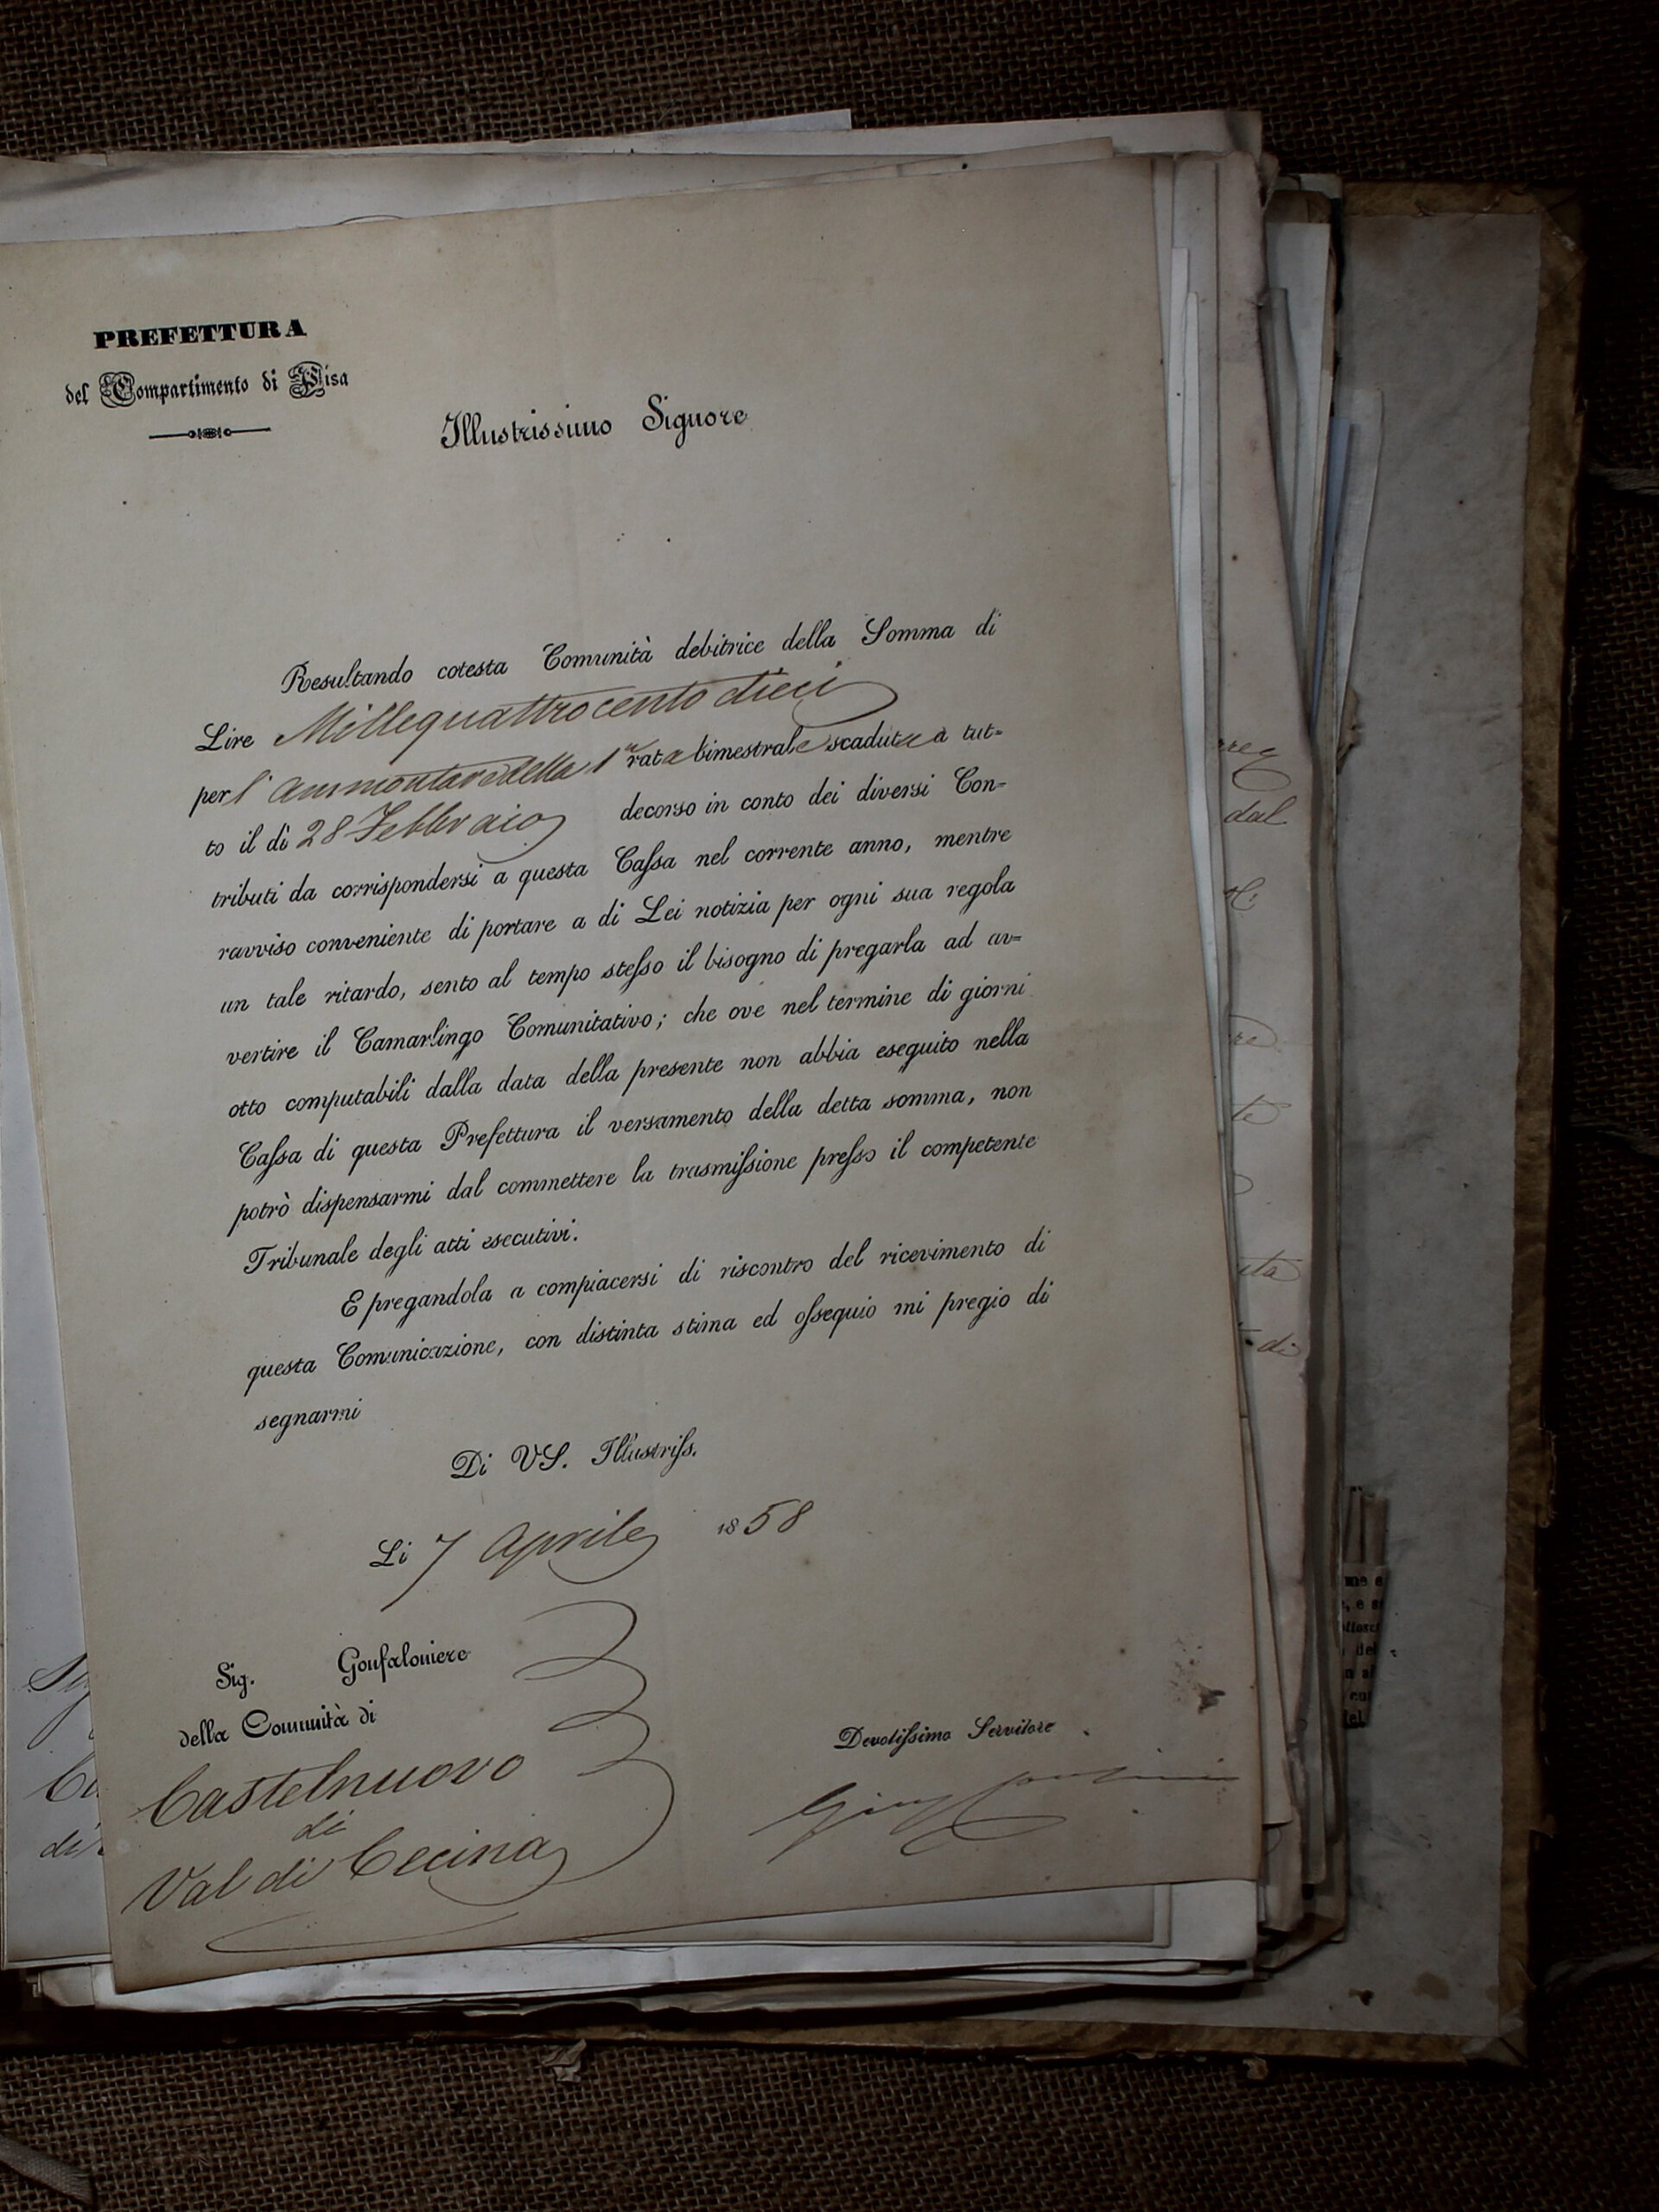 PREFETTURA
del Compartimento di Pisa
Illustrissimo Signore
Resultando cotesta Comunità debitrice della Somma di
Lire Millequattrocento dieci
per l'ammontare della 1ª rata bimestrale scaduta a tut=
to il dì 28 Febbraio decorso in conto dei diversi Con=
tributi da corrispondersi a questa Caſsa nel corrente anno, mentre
ravviso conveniente di portare a di Lei notizia per ogni sua regola
un tale ritardo, sento al tempo steſso il bisogno di pregarla ad av=
vertire il Camarlingo Comunitativo; che ove nel termine di giorni
otto computabili dalla data della presente non abbia eseguito nella
Caſsa di questa Prefettura il versamento della detta somma, non
potrò dispensarmi dal commettere la trasmiſsione preſso il competente
Tribunale degli atti esecutivi.
E pregandola a compiacersi di riscontro del ricevimento di
questa Comunicazione, con distinta stima ed oſsequio mi pregio di
segnarmi
Di VS. Illustriſs.
Li 7 Aprile 1858
Sig. Gonfaloniere
della Comunità di
Castelnuovo
di
Val di Cecina
Devotiſsimo Servitore
dal
di